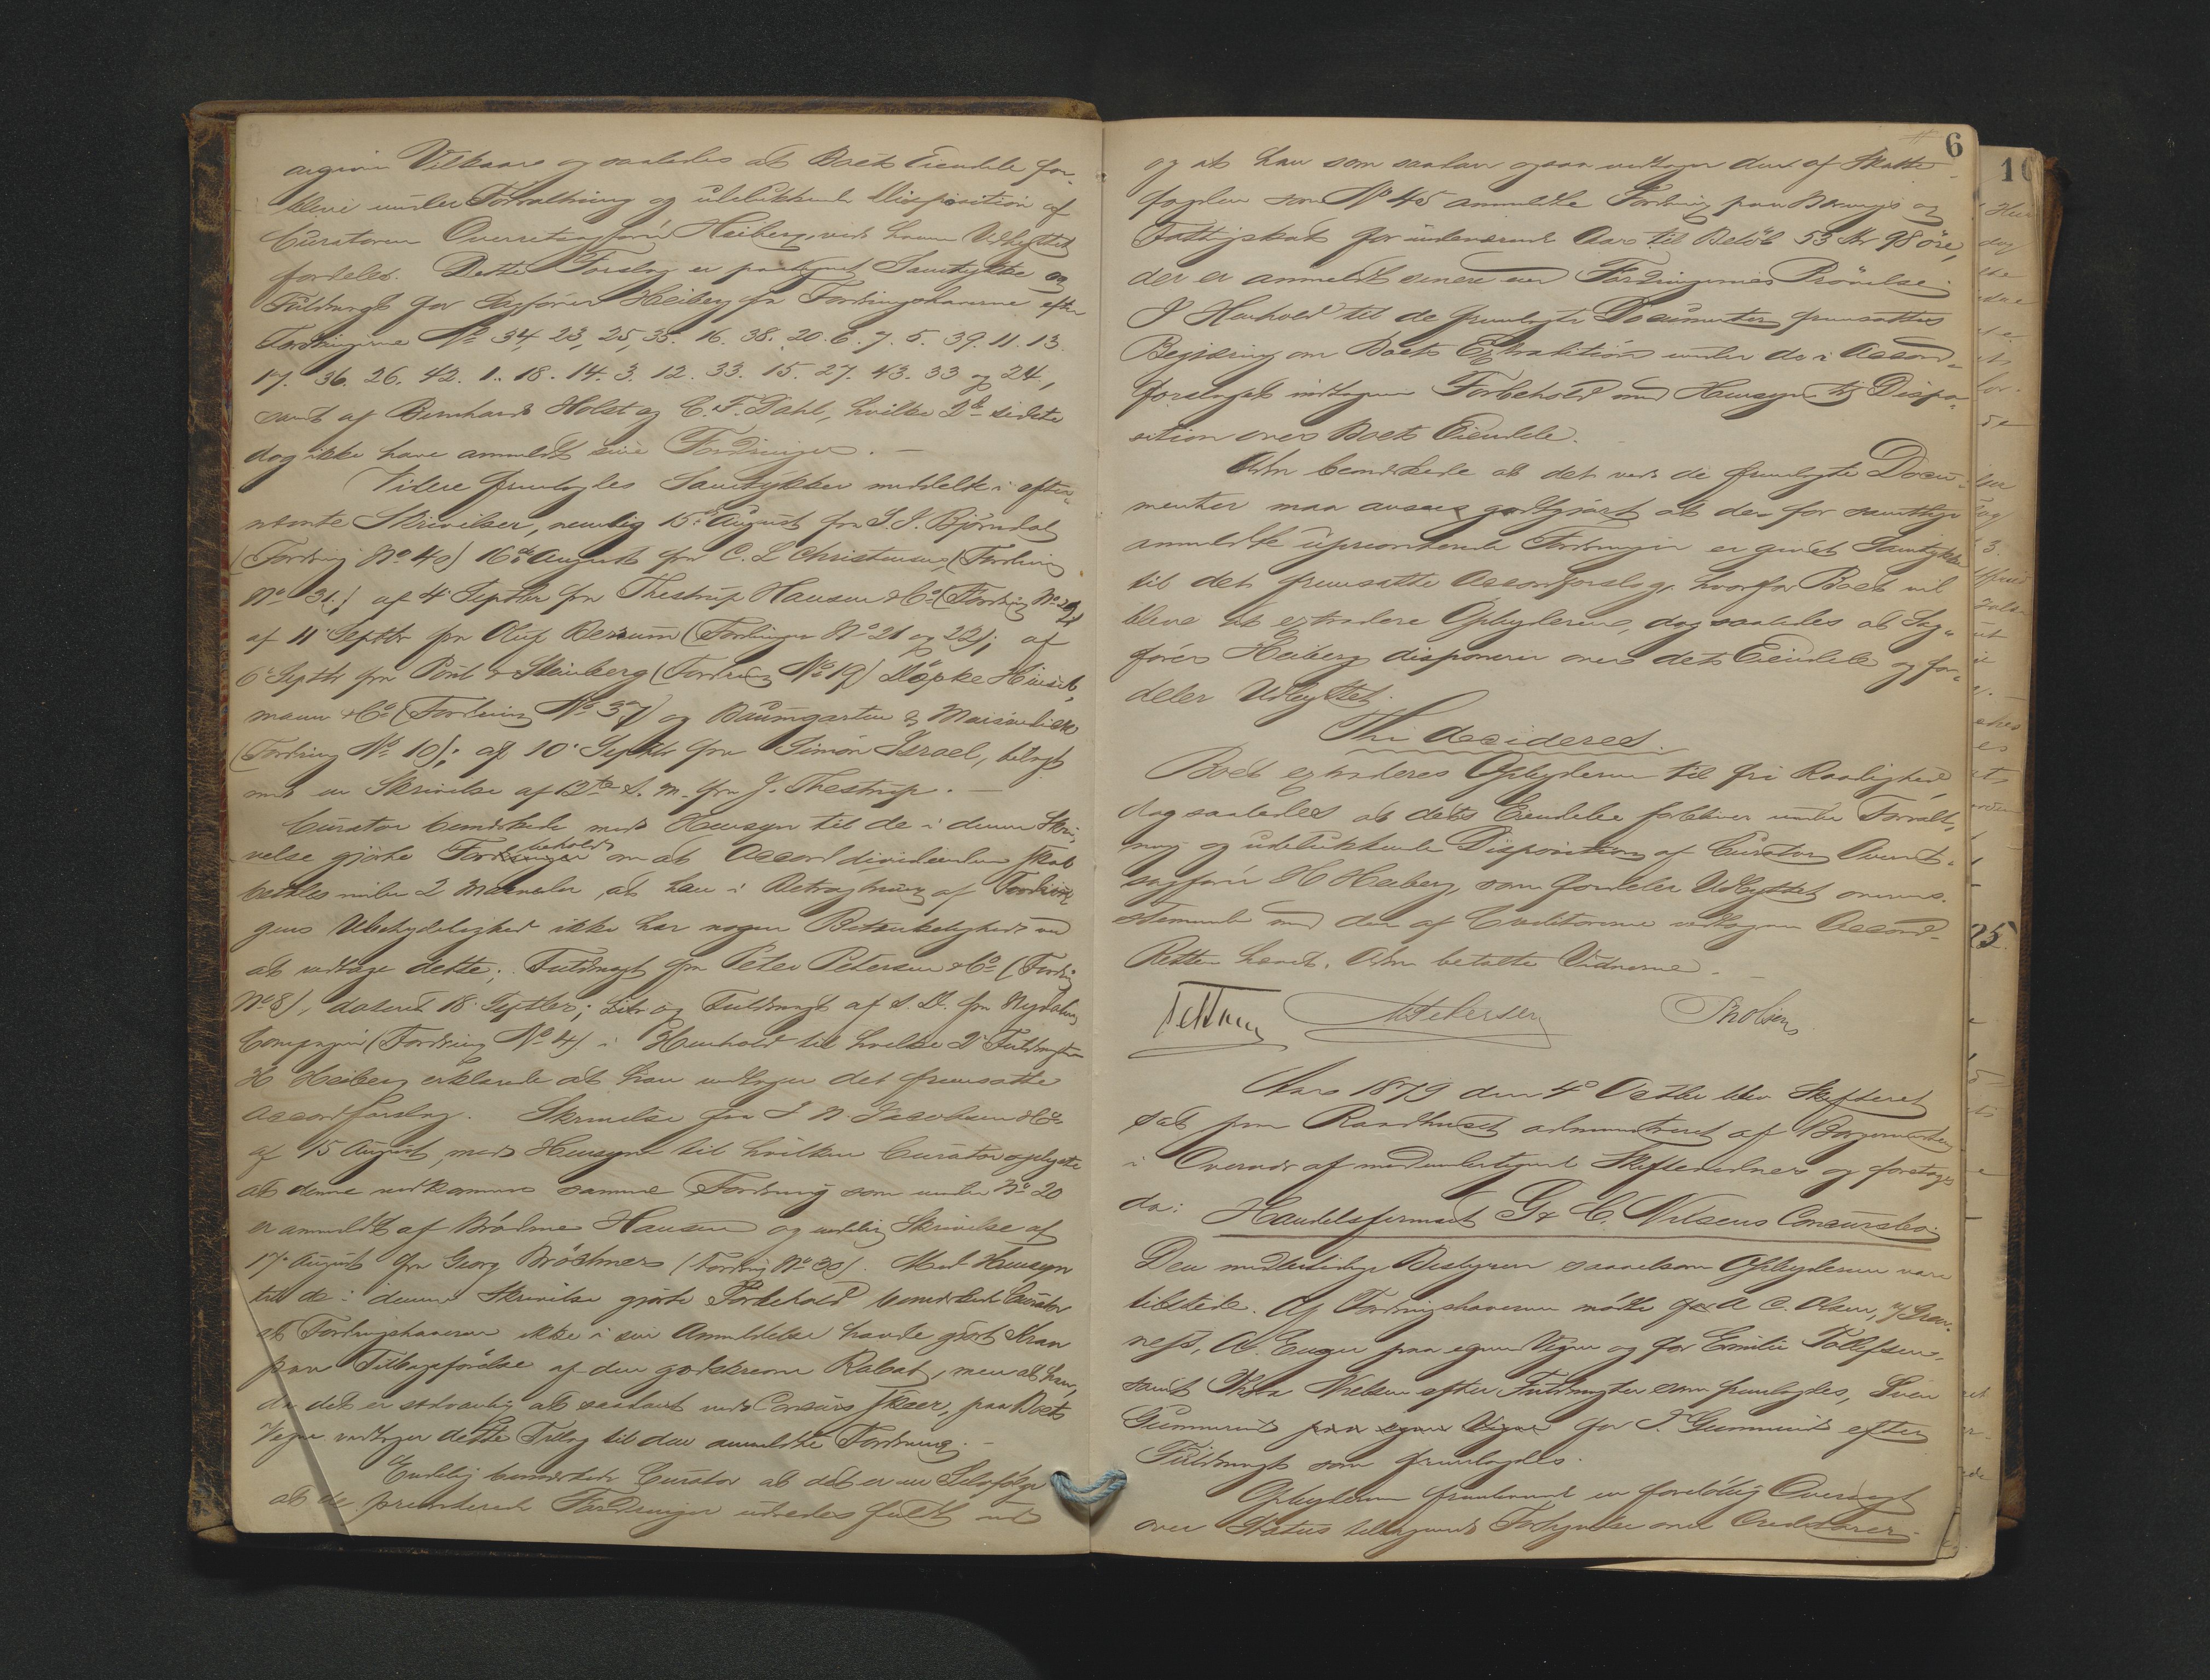 angivne Vilkaar og saaledes at Boets Eiendele for-
blive under Forvaltning og udelukkende Disposition af
Curatoren Overretssagfører Heiberg, ved hvem Udbyttet
fordeles. Dette Forslag er paategnet Samtykke og
Fuldmagt for Sagfører Heiberg fra Fordringshaverne efter
Fordringerne No 34, 23, 25, 35. 16. 38. 20. 6. 7. 5. 39. 11. 13.
17. 36. 26. 42. 1. 18. 14. 3. 12. 33. 15. 27. 43. 33 og 24,
samt af Bernhard Holst og C. F. Dahl, hvilke 2de sidste
dog ikke have anmeldt sine Fordringer. —
Videre fremlagdes Samtykker meddelte i efter-
nævnte Skrivelser, nemlig 15de August fra S. J. Bjørndal
(Fordring No 40) 16de August fra C. L. Christensen, (Fordring
No 31.) af 4de Septbr fra Thestrup Hansen & Co (Fordring No 29)
af 11 Septbr fra Oluf Bersum (Fordringer No 21 og 22); af
6te Septbr fra Pont & Steinberg (Fordring No 19) Döpke Heinsel-
mann & Co (Fordring No 37) og Baumgarten &
(Fordring No 10); af 10de Septbr fra Simon Israel, bilagt
med en Skrivelse af 12te s. m. fra J. Thestrup. —
Curator bemærkede med Hensyn til de i denne Skri-
velse gjorte Forbehold om at Accorddividenden skal
betales inden 2 Maaneder, at han i Betragtning af Fordrin-
gens Ubetydelighed ikke har nogen Betænkelighed ved
at vedtage dette; Fuldmagt fra Peter Petersen & Co (Fordring
No 8), dateret 18 Septbr; Litr og Fuldmagt af s. D. fra Nydalens
Compagni (Fordring No 4) i Henhold til hvilke 2de Fuldmagter
H Heiberg erklærede at han vedtager det fremsatte
Accordforslag. Skrivelse fra J N Jacobsen & Co
af 15 August, med Hensyn til hvilken Curator oplyste
at denne vedkommer samme Fordring som under No 20
er anmeldt af Brødrene Hansen og endelig Skrivelse af
17de August fra Georg Bröchner (Fordring No 30). Med Hensyn
til de i denne Skrivelse gjorte Forbehold bemærkede Curator
at Fordringshaveren ikke i sin Anmeldelse havde gjort Krav
paa Tilbageførelse af den godskrevne Rabat, men at han,
da det er sædvanlig at saadant ved Concurs skeer, paa Boets
Vegne vedtager dette Tillæg til den anmeldte Fordring. —
Endelig bemærkede Curator at det er en Selvfølge
at de prioriterede Fordringer udredes fuldt ud
6
og at han som saadan ogsaa vedtager den af Skatte-
fogden som No 45 anmeldte Fordring paa Bornings og
Fattigskat for indeværende Aar til Beløb 53 Kr 98 öre,
der er anmeldt senere end Fordringernes Prøvelse.
I Henhold til de fremlagte Documenter fremsattes
Begjæring om Boets Extradition under de i Accord-
forslaget indtagne Forbehold med Hensyn til Dispo-
sition over Boets Eiendele.
Adm bemærkede at det ved de fremlagte Docu-
menter maa ansees godtgjort at der for samtlige
anmeldte uprioriterede Fordringer er givet Samtykke
til det fremsatte Accordforslag, hvorfor Boet vil
blive at extradere Opbyderne, dog saaledes at Sag-
fører Heiberg disponerer over dets Eiendele og for-
deler Udbyttet.
Thi decideres.
Boet extraderes Opbyderne til fri Raadighed
dog saaledes at dets Eiendele forbliver under Forvalt-
ning og udelukkende Disposition af Curator Overrets-
sagfører H Heiberg, som fordeler Udbyttet overens-
stemmende med den af Creditorerne vedtagne Accord.
Retten hævet. Adm betalte Vidnerne. —
Petersen Tholsen
Aar 1879 den 4de Octbr blev Skifteret
sat paa Raadhuset administreret af Borgermesteren
i Overvær af medundertegnede Skiftevidner og foretoges
da:
Handelsfirmaet G & C. Nilsens Concursbo:
Den midlertidige Bestyrer saavelsom Opbyderne vare
tilstede. Af Fordringshaverne mødte for A C. Olsen,
A. Enger paa egne Vegne og for Emilie Tollefsen,
samt Thea Nielsen efter Fuldmagter som fremlagdes, Sven
Gummerud paa egne Vegne for J. Gummerud efter
Fuldmagt som fremlagdes.
Opbyderne fremlagde en foreløbig Oversigt
over Status tilligemed Fortegnelse over Creditorer.